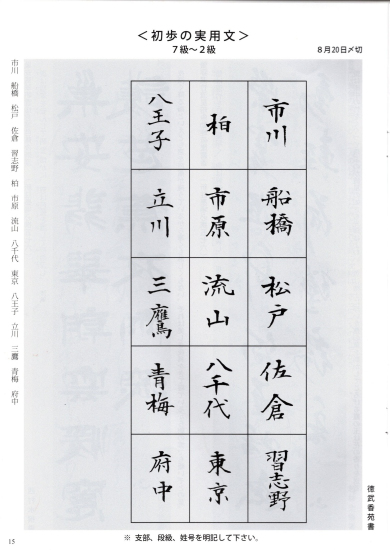 ＜初歩の実用文＞
７級～２級
８月20日〆切
市川
船橋
松戸
佐倉
習志野
柏
市原
流山
八千代
東京
八王子
立川
三鷹
青梅
府中
徳武香苑書
市川 船橋 松戸 佐倉 習志野 柏 市原 流山 八千代 東京 八王子 立川 三鷹 青梅 府中
※ 支部、段級、姓号を明記して下さい。
15